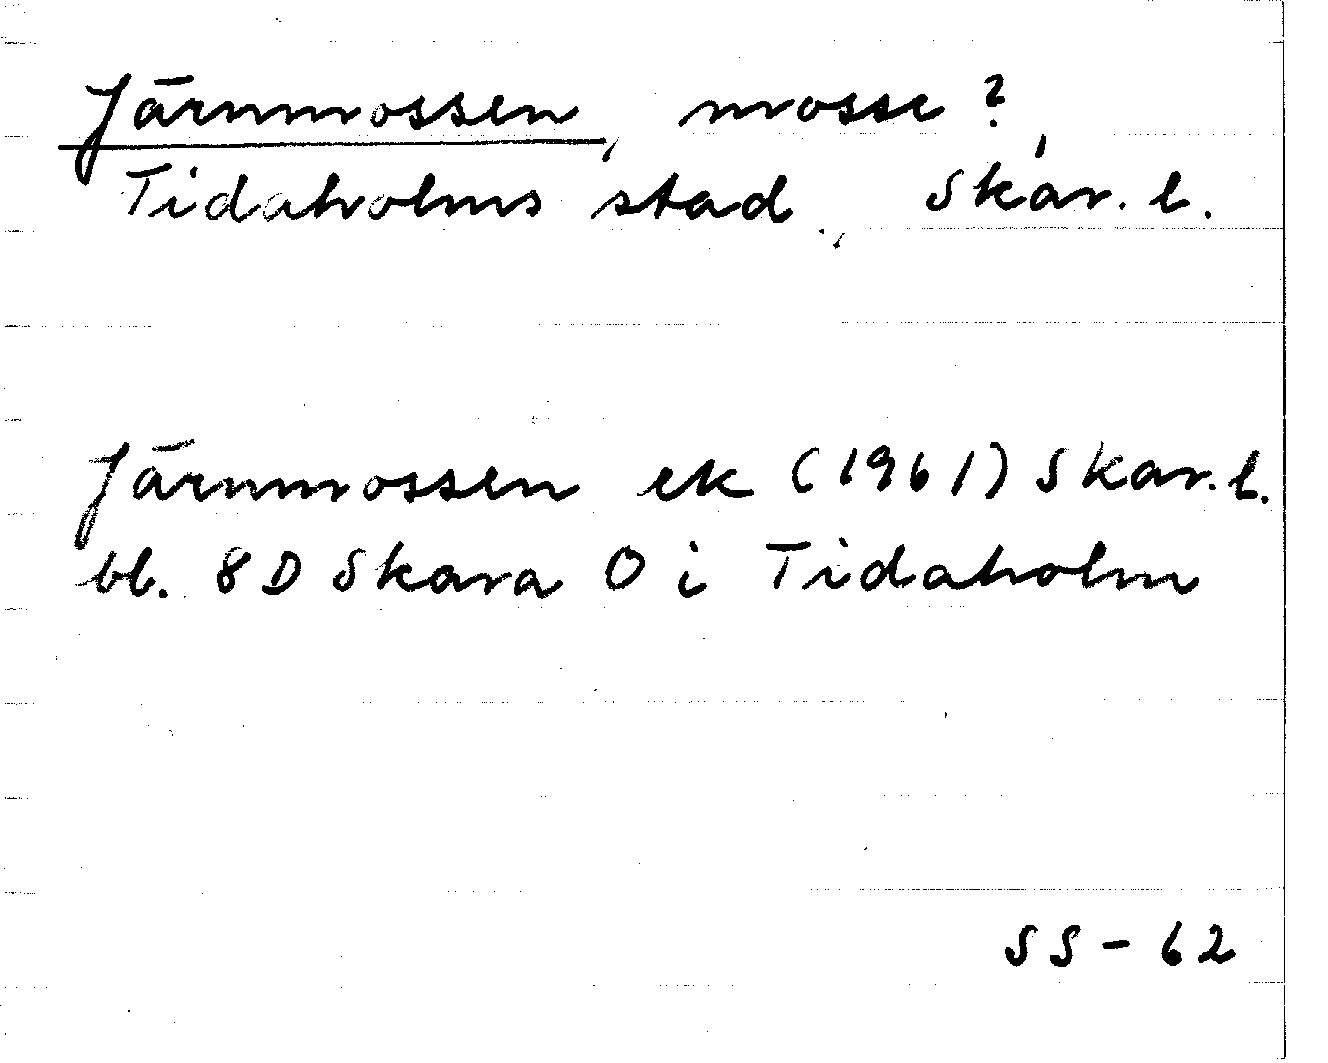 Järnmossen, mosse?,
Tidaholms stad., Skar. l.
Järnmossen ek (1961) Skar. l.
bl. 8D Skara O i Tidaholm
SS-62